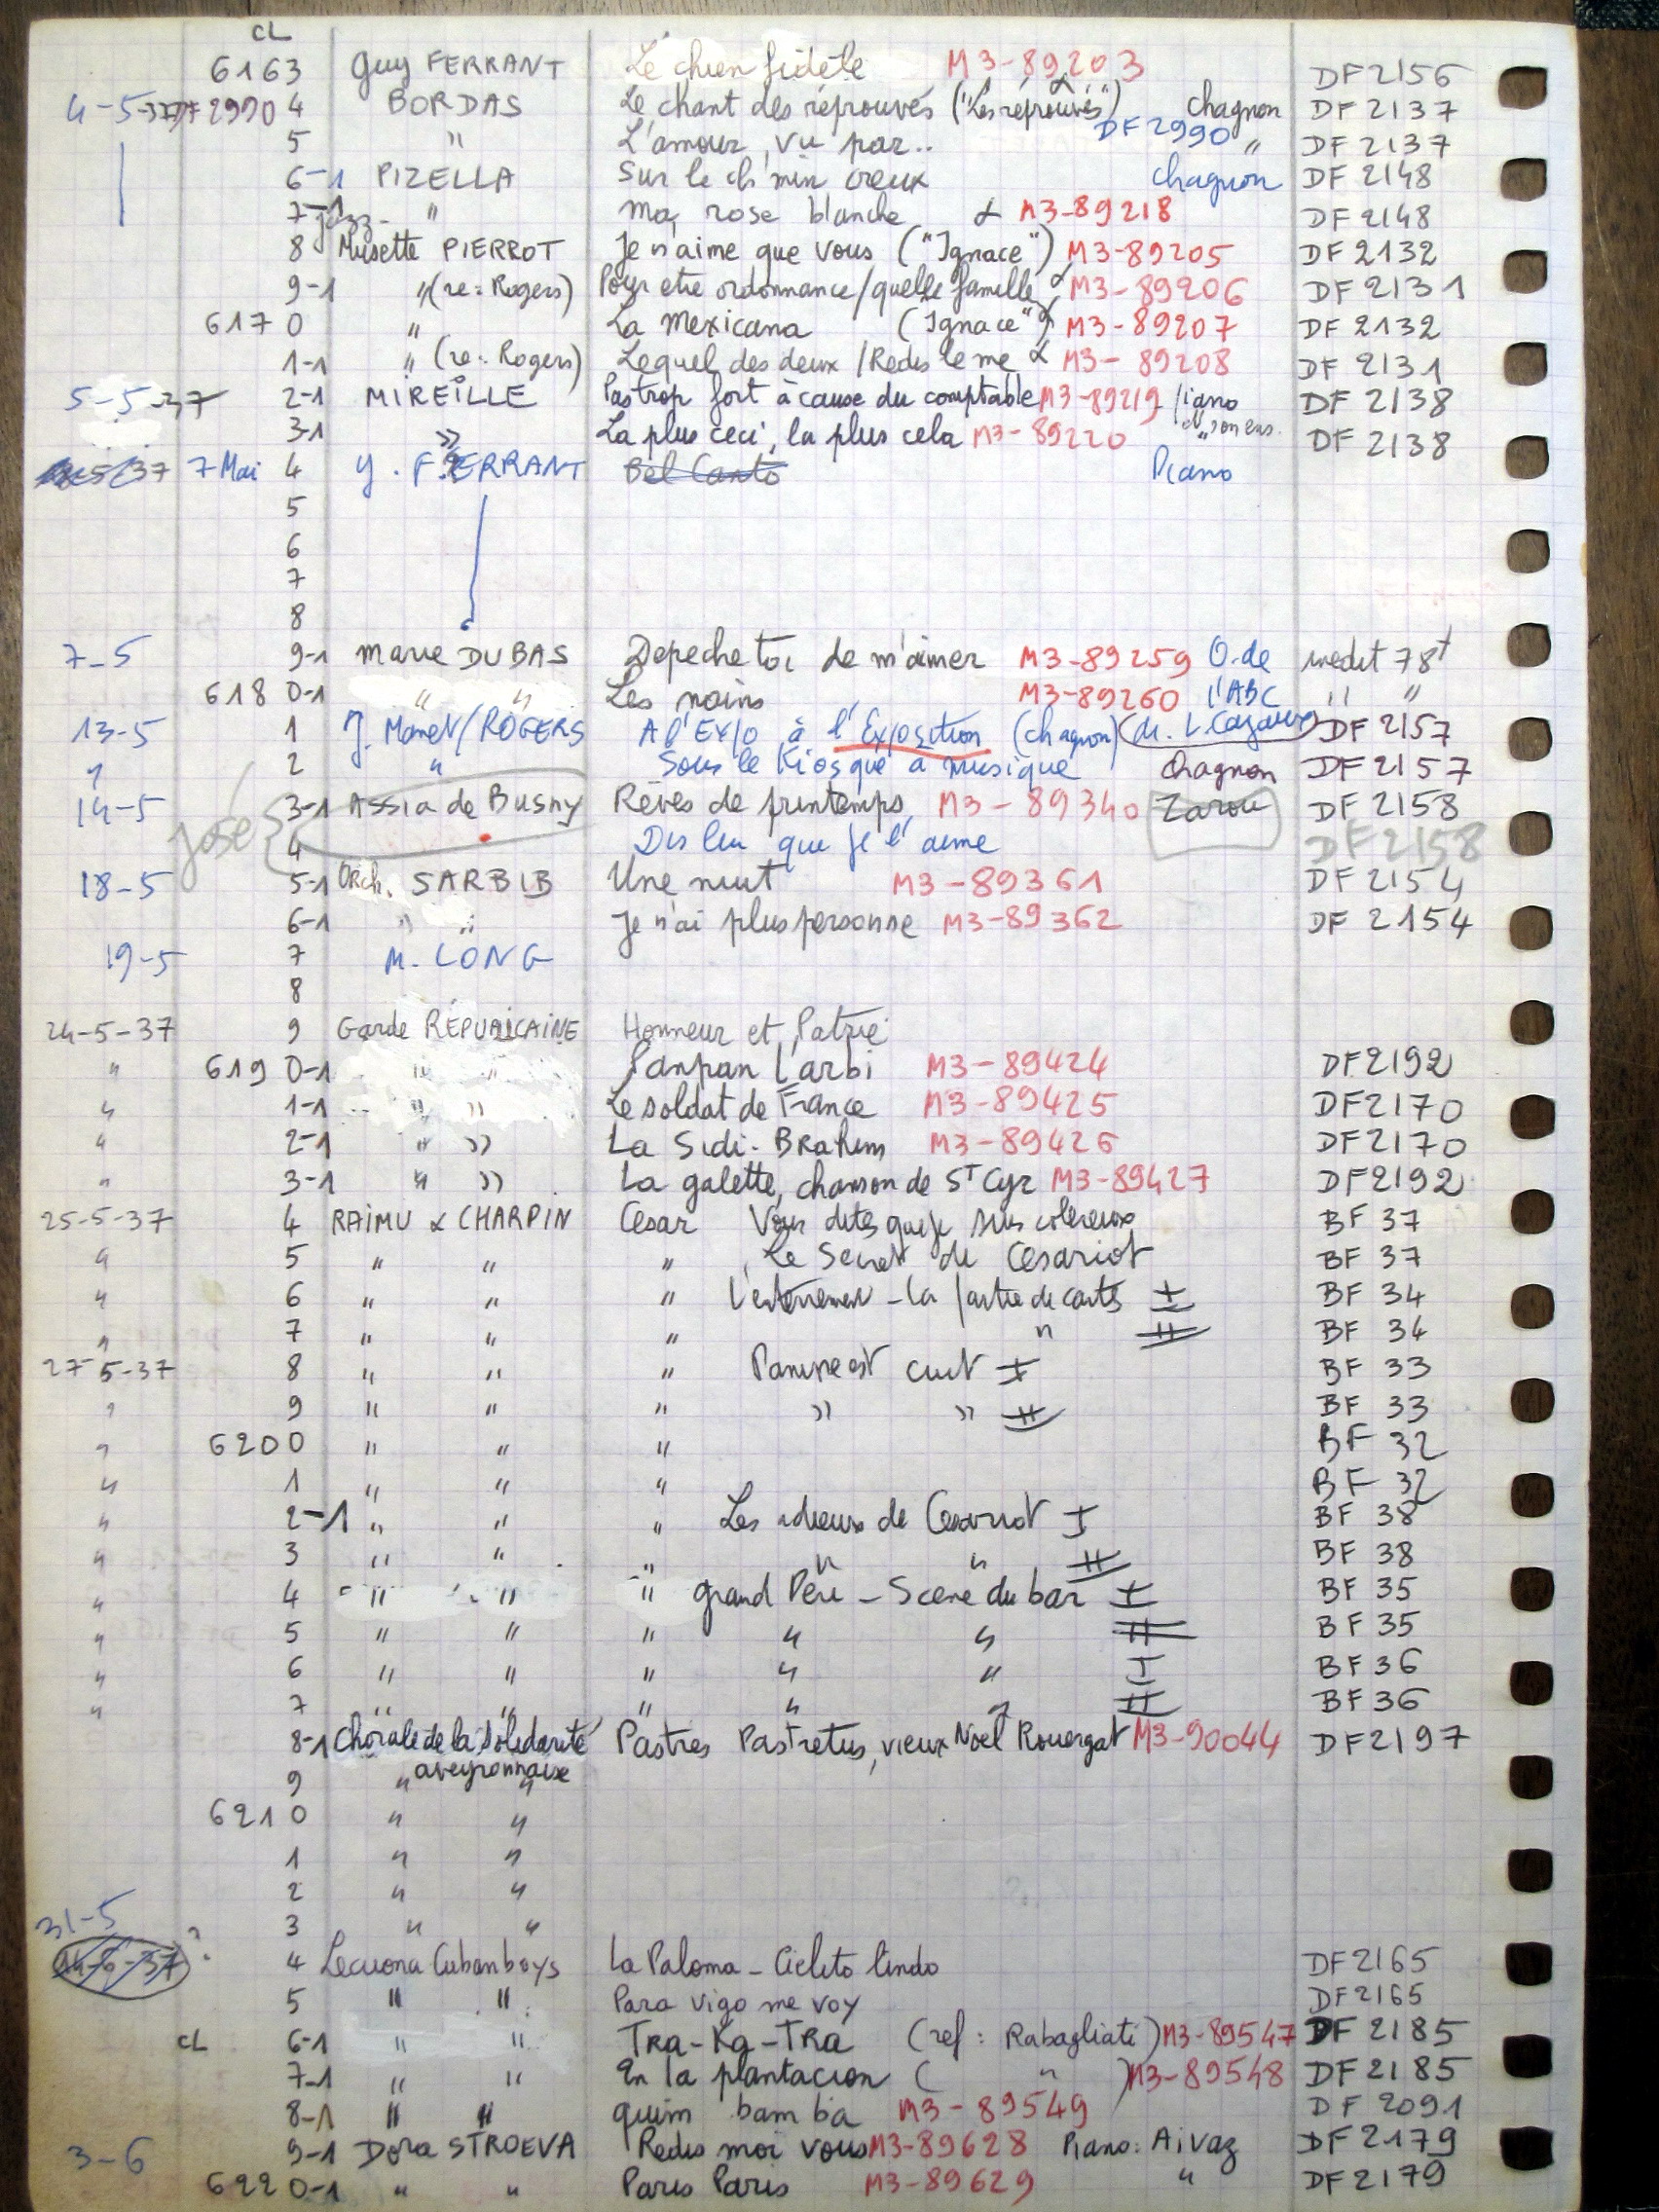 CL
6163 Guy FERRANT Le chien fidèle M3-89203 DF2156
4-5-37 DF2990 4 BORDAS Le chant des réprouvés ("Les réprouvés") Chagnon DF2137
5 " L'amour, vu par.. DF2990 " DF2137
6-1 PIZELLA Sur le ch'min creux Chagnon DF2148
7-1 " Ma rose blanche & M3-89218 DF2148
8 Musette PIERROT Je n'aime que vous ("Ignace") M3-89205 DF2132
9-1 " (re: Rogers) Pour etre ordonnance/quelle famille & M3-89206 DF2131
6170 " La Mexicana ("Ignace") & M3-89207 DF2132
1-1 " (re: Rogers) Lequel des deux / Redis le me & M3-89208 DF2131
5-5-37 2-1 MIREILLE Pas trop fort à cause du comptable M3-89219 Piano DF2138
3-1 " La plus ceci, la plus cela M3-89220 " son ens. DF2138
5/37 7 Mai 4 G. FERRANT Bel Canto Piano
5
6
7
8
7-5 9-1 Marie DUBAS Depeche toi de m'aimer M3-89259 O. de inédit 78t
6180-1 " " Les nains M3-89260 l'ABC " "
13-5 1 J. Manet/ROGERS A l'Expo à l'Exposition (Chagnon) (di. L. Cazaux) DF2157
" 2 " Sous le Kiosque à musique Chagnon DF2157
14-5 3-1 Assia de Busny Rêves de printemps M3-89340 Zarou DF2158
José 4 Dis lui que je l'aime DF2158
18-5 5-1 Orch. SARBIB Une nuit M3-89361 DF2154
6-1 " " Je n'ai plus personne M3-89362 DF2154
19-5 7 M. LONG
8
24-5-37 9 Garde RÉPUBLICAINE Honneur et Patrie
" 6190-1 " " Panpan L'arbi M3-89424 DF2192
" 1-1 " " Le soldat de France M3-89425 DF2170
" 2-1 " " La Sidi-Brahim M3-89426 DF2170
" 3-1 " " La galette, chanson de St Cyr M3-89427 DF2192
25-5-37 4 RAIMU & CHARPIN César Vous dites que je suis coléreux BF 37
" 5 " " " Le Secret de Césariot BF 37
" 6 " " " L'enterrement - la partie de cartes I BF 34
" 7 " " " " II BF 34
27-5-37 8 " " " Panisse est cuit I BF 33
" 9 " " " " " II BF 33
" 6200 " " " BF 32
" 1 " " " BF 32
" 2-1 " " " Les adieux de Césariot I BF 38
" 3 " " " " " II BF 38
" 4 " " " Grand Père - Scène du bar I BF 35
" 5 " " " " " II BF 35
" 6 " " " " " I BF 36
" 7 " " " " " II BF 36
8-1 Chorale de la Solidarité Pastres Pastretus, vieux Noël Rouergat M3-90044 DF2197
aveyronnaise
9 " "
6210 " "
1 " "
2 " "
31-5 3 " "
14-6-37 ? 4 Lecuona Cuban boys La Paloma - Cielito lindo DF2165
5 " " Para vigo me voy DF2165
CL 6-1 " " TRA-Ka-TRA (ref: Rabagliati) M3-89547 DF2185
7-1 " " En la plantacion ( " ) M3-89548 DF2185
8-1 " " quim bam ba M3-89549 DF2091
3-6 9-1 Dora STROEVA Redis moi vous M3-89628 Piano: Aivaz DF2179
6220-1 " " Paris Paris M3-89629 " DF2179